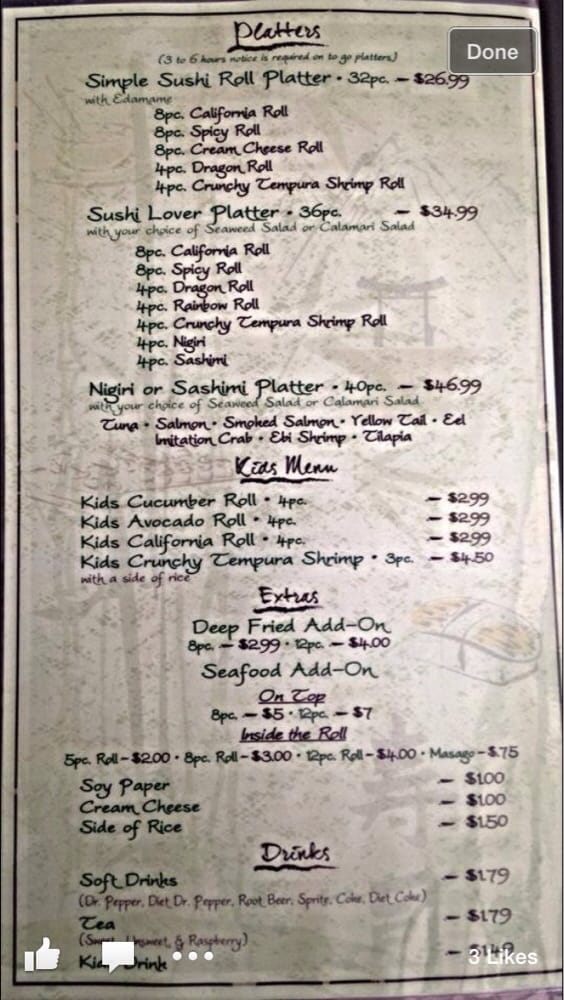 Platters
Done
(3 to 6 hours notice is required on to go platters)
Simple Sushi Roll Platter • 32pc. – $26.99
with Edamame
8pc. California Roll
8pc. Spicy Roll
8pc. Cream Cheese Roll
4pc. Dragon Roll
4pc. Crunchy Tempura Shrimp Roll
Sushi Lover Platter • 36pc. – $34.99
with your choice of Seaweed Salad or Calamari Salad
8pc. California Roll
8pc. Spicy Roll
4pc. Dragon Roll
4pc. Rainbow Roll
4pc. Crunchy Tempura Shrimp Roll
4pc. Nigiri
4pc. Sashimi
Nigiri or Sashimi Platter • 40pc. – $46.99
with your choice of Seaweed Salad or Calamari Salad
Tuna • Salmon • Smoked Salmon • Yellow Tail • Eel
Imitation Crab • Ebi Shrimp • Tilapia
Kids Menu
Kids Cucumber Roll • 4pc. – $2.99
Kids Avocado Roll • 4pc. – $2.99
Kids California Roll • 4pc. – $2.99
Kids Crunchy Tempura Shrimp • 3pc. – $4.50
with a side of rice
Extras
Deep Fried Add-On
8pc. – $2.99 • 12pc. – $4.00
Seafood Add-On
On Top
8pc. – $5 • 12pc. – $7
Inside the Roll
5pc. Roll – $2.00 • 8pc. Roll – $3.00 • 12pc. Roll – $4.00 • Masago – $.75
Soy Paper – $1.00
Cream Cheese – $1.00
Side of Rice – $1.50
寿
Drinks
Soft Drinks – $1.79
(Dr. Pepper, Diet Dr. Pepper, Root Beer, Sprite, Coke, Diet Coke)
Tea – $1.79
(Sweet, Unsweet, & Raspberry)
Kids Drink
3 Likes